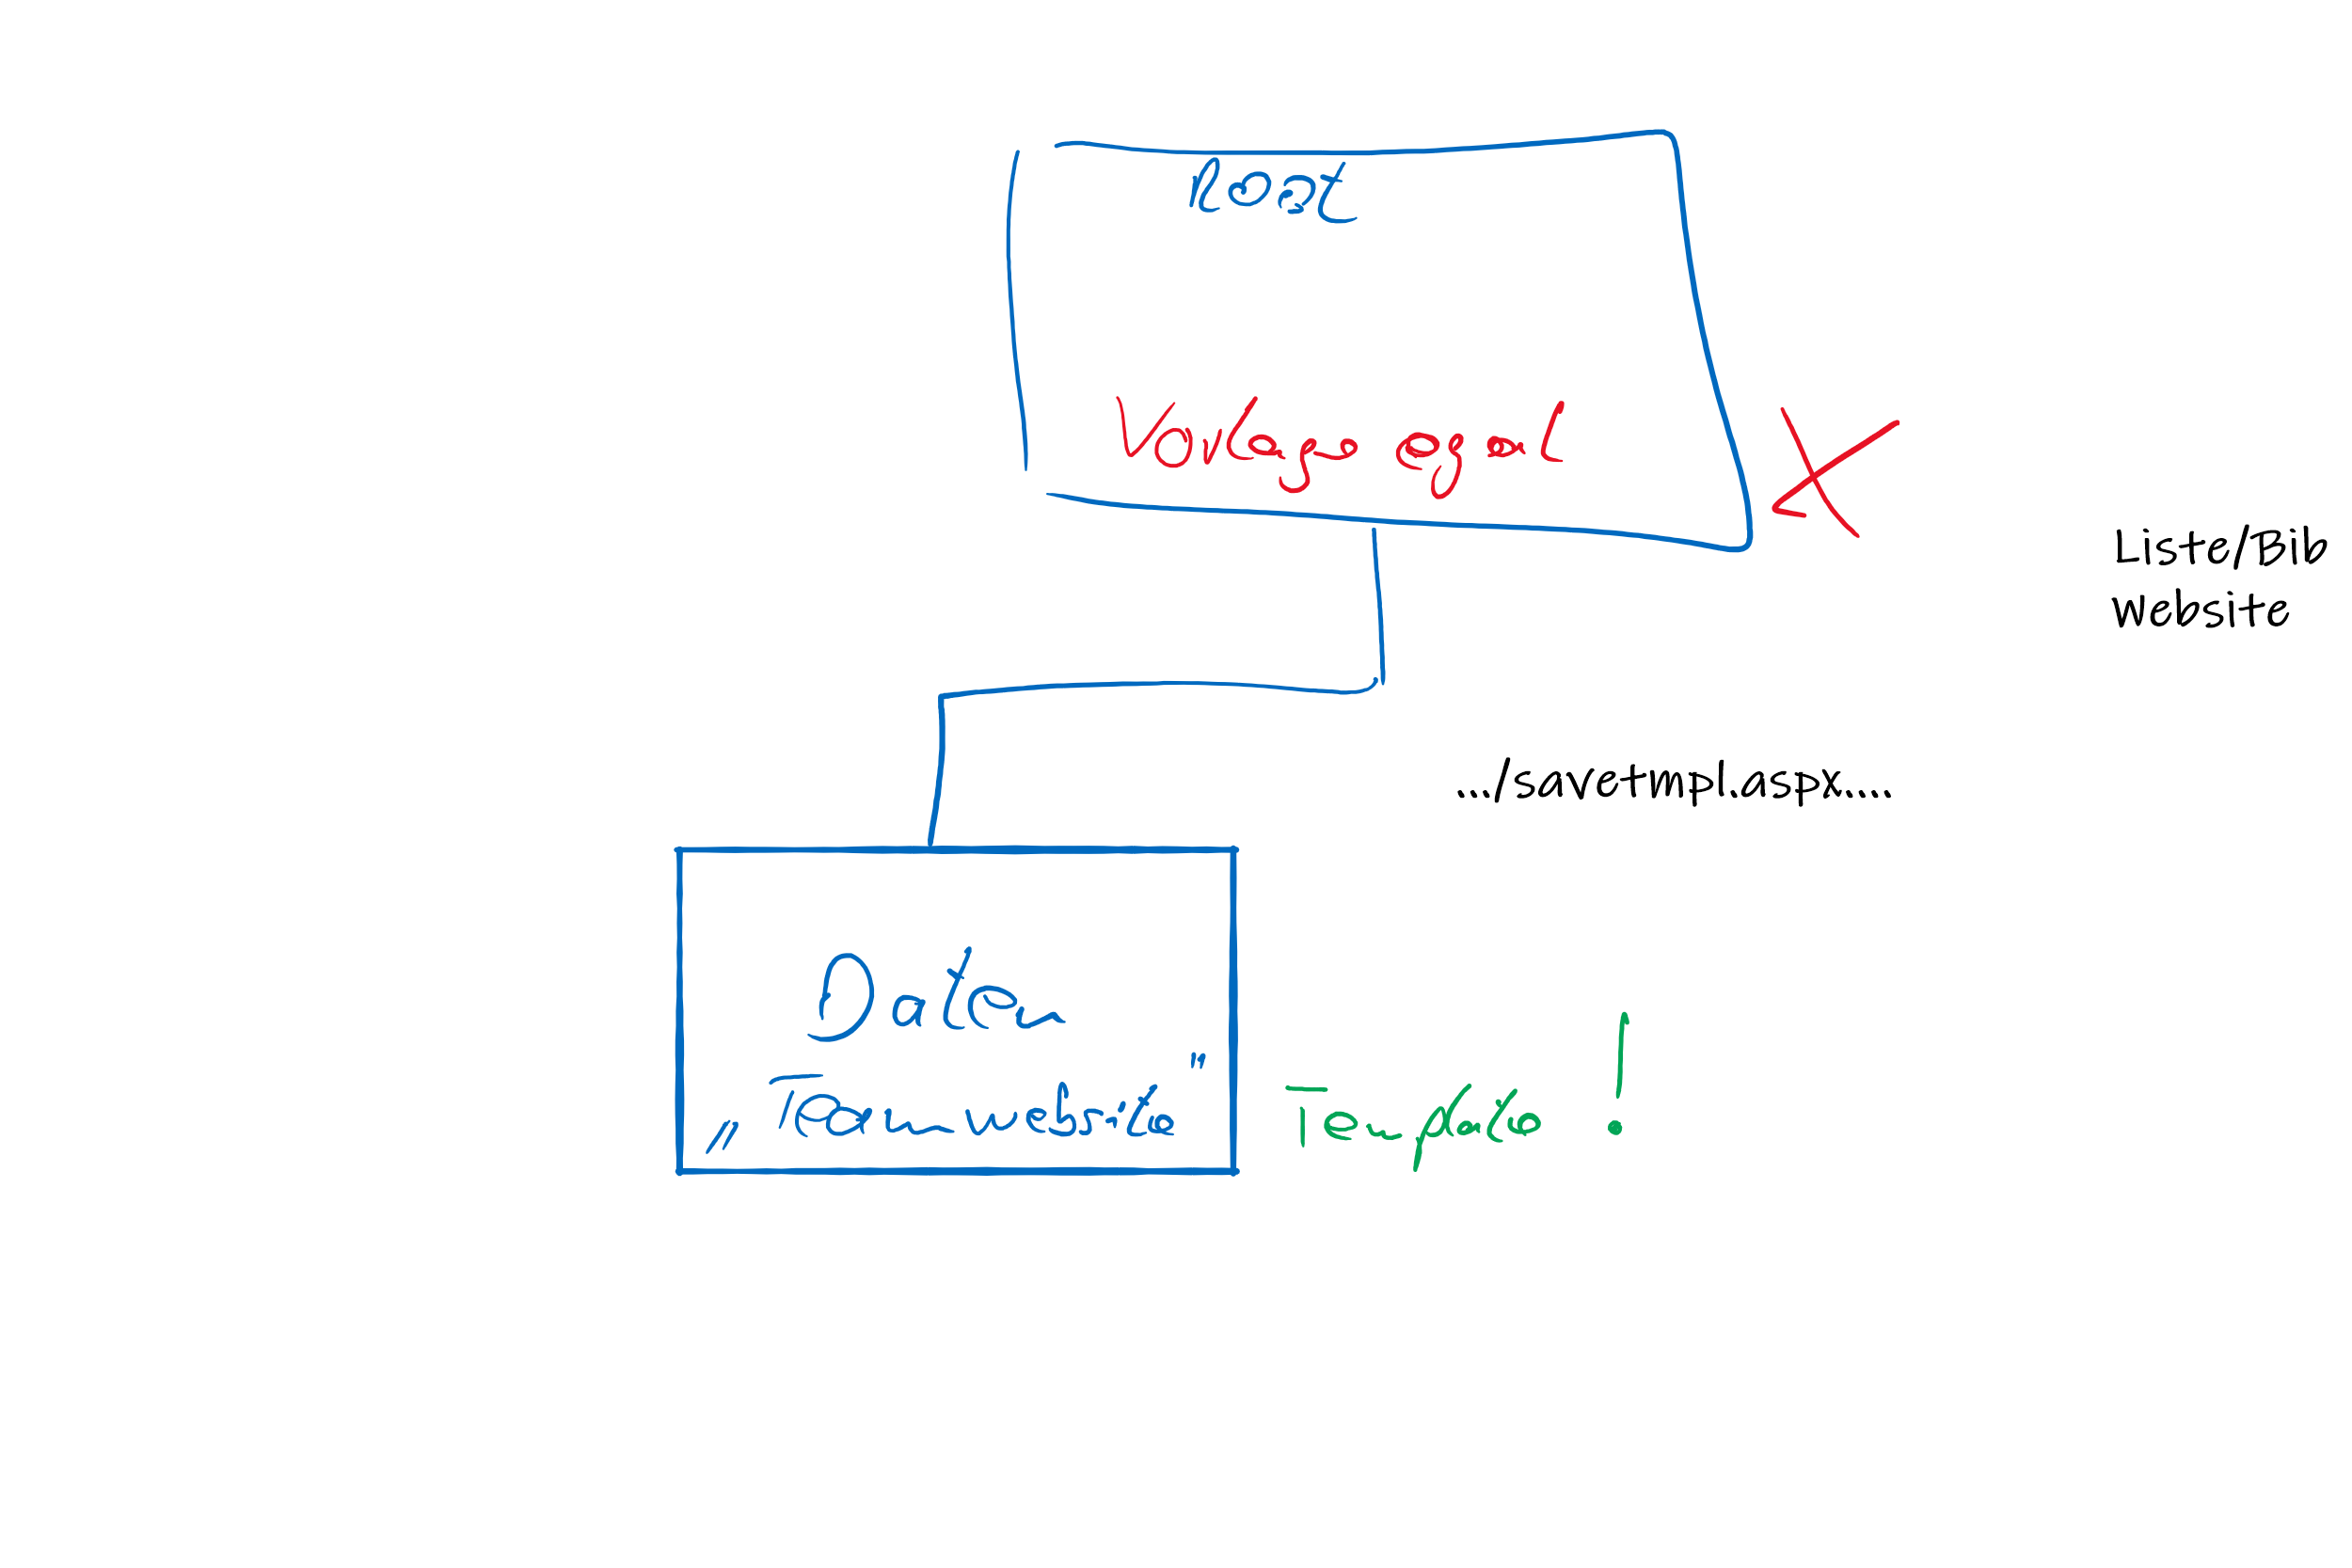 Vorlage egal
Liste/Bib
Website
.../savetmpl.aspx.....
Daten
„Teamwebsite"
Template!